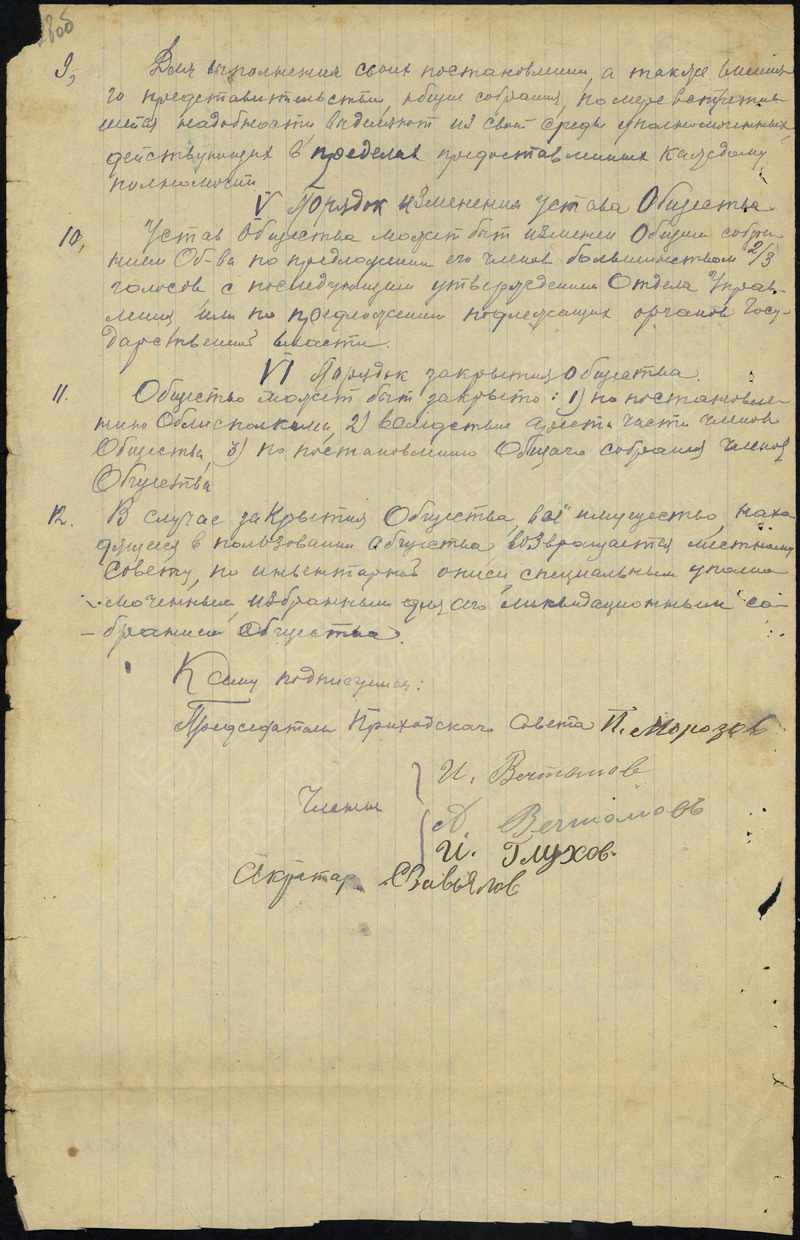 9, Для выполнения своих постановлений, а также внешне-
го представительства, общие собрания, по мере встретив-
шейся надобности выделяют из своей среды уполномоченных
действующих в пределах предоставленных каждому
полномочий
V Порядок изменения устава Общества
10, Устав Общества может быт изменен Общим собра-
нием Об-ва по предложении его членов большинством 2/3
голосов с последующим утверждением Отдела Управ-
ления или по предложении надлежащих органов Госу-
дарственной власти.
VI Порядок закрытия общества.
11. Общество может быт закрыто: 1) по постановле-
нию Облисполкома, 2) вследствии части членов
Общества, 3) по постановлению Общаго собрания членов
Общества
12. В случае закрытия Общества, всё имущество, нахо
дящееся в пользовании общества возвращается местному
совету, по инвентарной описи специальным уполно
моченным, избранным для сего "ликвидационным" со-
бранием Общества.
К сему подписуемся:
Председатель Приходскаго Совета П. Морозов
И. Вечтомов
Члены
А Вечтомовъ
И. Глухов.
Секретар СЗавьялов